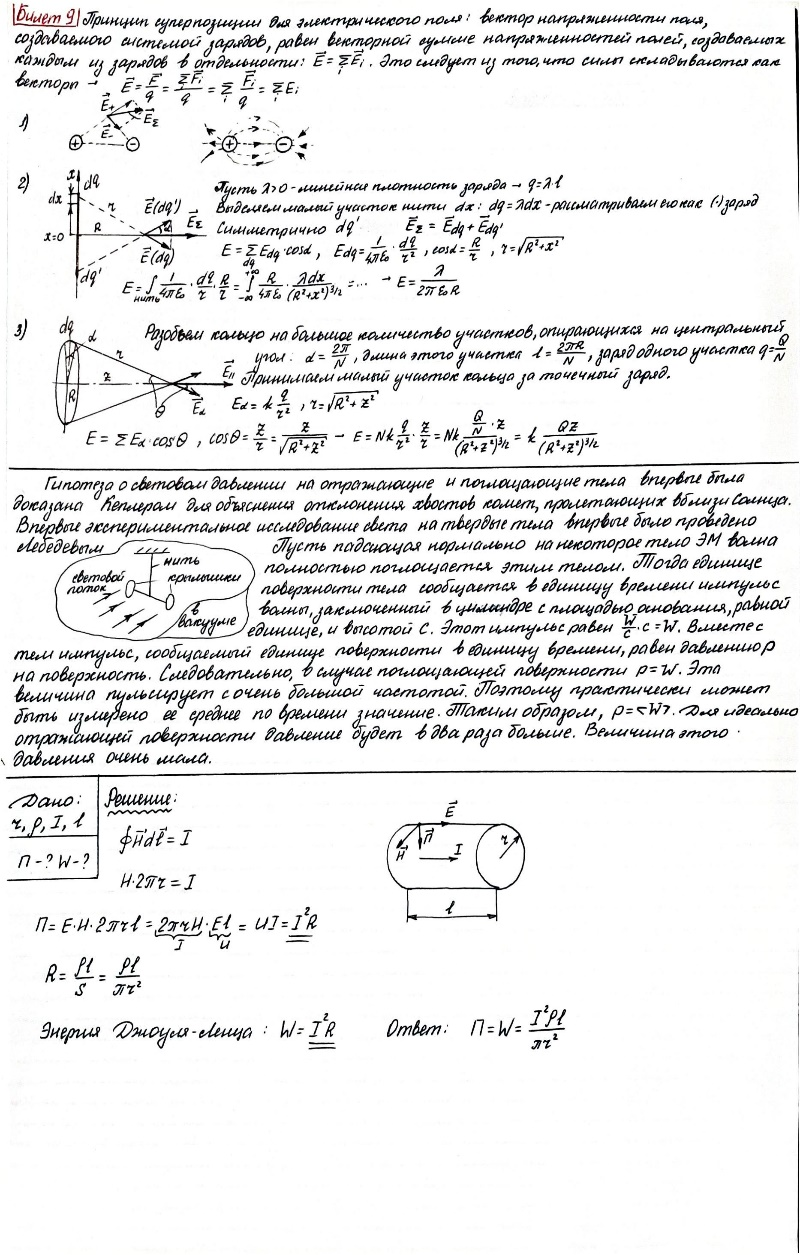 Билет 9 Принцип суперпозиции для электрического поля: вектор напряженности поля,
создаваемого системой зарядов, равен векторной сумме напряженностей полей, создаваемых
каждым из зарядов в отдельности: E⃗ = Σ E⃗i. Это следует из того, что силы складываются как
вектора → E⃗ = F⃗/q = ΣF⃗i/q = Σ F⃗i/q = Σ Ei
1) E⃗+ E⃗- E⃗Σ + - + -
2) x dq Пусть λ>0 - линейная плотность заряда → q=λ·l
dx r E⃗(dq') E⃗Σ Выделяем малый участок нити dx: dq=λdx - рассматриваем его как (·) заряд
x=0 R E⃗(dq) Симметрично dq' E⃗Σ = E⃗dq + E⃗dq'
E = Σ Edq·cosα, Edq = 1/4πε0 · dq/r², cosα = R/r, r = √R²+x²
dq' E = ∫нить 1/4πε0 · dq/r · R/r = ∫-∞+∞ R/4πε0 · λdx/(R²+x²)^3/2 = ... → E = λ/2πε0R
3) dq α Разобьем кольцо на большое количество участков, опирающихся на центральный
r угол: α = 2π/N, длина этого участка l = 2πR/N, заряд одного участка q = Q/N
R z θ E⃗11 E⃗α Принимаем малый участок кольца за точечный заряд.
Eα = k q/r², r = √R²+z²
E = ΣEα·cosθ, cosθ = z/r = z/√R²+z² → E = Nk q/r² · z/r = Nk Q/N·z/(R²+z²)^3/2 = k Qz/(R²+z²)^3/2
Гипотеза о световом давлении на отражающие и поглощающие тела впервые была
доказана Кеплерам для объяснения отклонения хвостов комет, пролетающих вблизи Солнца.
Впервые экспериментальное исследование света на твердые тела впервые было проведено
Лебедевым Пусть падающая нормально на некоторое тело ЭМ волна
световой поток нить крылышки в вакууме полностью поглощается этим телом. Тогда единице
поверхности тела сообщается в единицу времени импульс
волны, заключенный в цилиндре с площадью основания, равной
единице, и высотой C. Этот импульс равен W/c·c=W. Вместе с
тем импульс, сообщаемый единице поверхности в единицу времени, равен давлению p
на поверхность. Следовательно, в случае поглощающей поверхности p=W. Эта
величина пульсирует с очень большой частотой. Поэтому практически может
быть измерено ее среднее по времени значение. Таким образом, p=<W>. Для идеально
отражающей поверхности давление будет в два раза больше. Величина этого
давления очень мала.
Дано: Решение:
r, ρ, I, l
П-? W-?
∮H⃗dl⃗ = I
E⃗ H⃗ П⃗ I r l
H·2πr = I
П = E·H·2πrl = 2πrH·El = UI = I²R
I U
R = ρl/S = ρl/πr²
Энергия Джоуля-Ленца: W = I²R Ответ: П=W= I²ρl/πr²